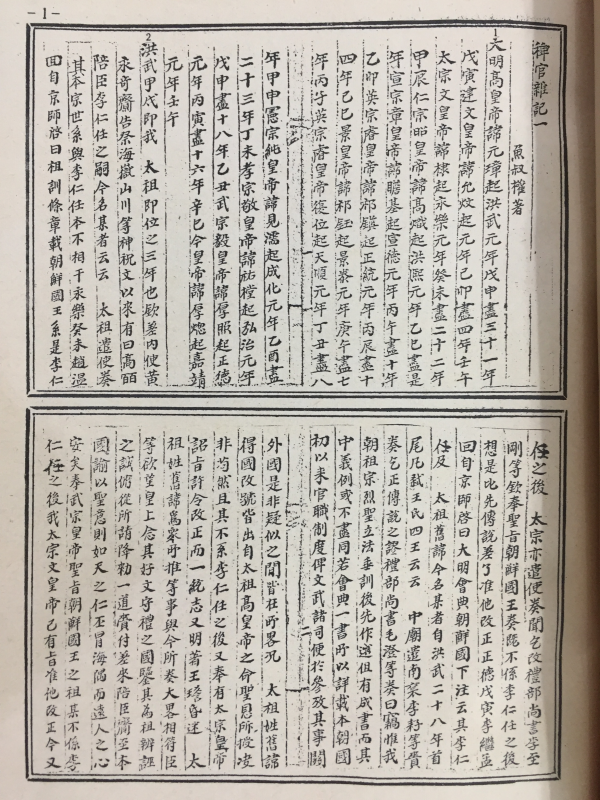 -1-
稗官雜記一
魚叔權著
1
大明高皇帝諱元璋起洪武元年戊申盡三十一年
戊寅建文皇帝諱允炆起元年己卯盡四年壬午
太宗文皇帝諱棣起永樂元年癸未盡二十二年
甲辰仁宗昭皇帝諱高熾起洪熙元年乙巳盡是
年宣宗章皇帝諱瞻基起宣德元年丙午盡十年
乙卯英宗睿皇帝諱祁鎮起正統元年丙辰盡十
四年己巳景皇帝諱祁鈺起景泰元年庚午盡七
年丙子英宗睿皇帝復位起天順元年丁丑盡八
年甲申憲宗純皇帝諱見濡起成化元年乙酉盡
二十三年丁未孝宗敬皇帝諱祐樘起弘治元年
戊申盡十八年乙丑武宗毅皇帝諱厚照起正德
元年丙寅盡十六年辛巳今皇帝諱厚熜起嘉靖
元年壬午
2
洪武甲戌即我 太祖即位之三年也欽差內使黃
永奇齎告祭海嶽山川等神祝文以來有曰高麗
陪臣李仁任之嗣今名某者云云 太祖遣使奏
其本宗世系與李仁任本不相干永樂癸未趙溫
回自京師啓曰祖訓條章載朝鮮國王系是李仁
任之後 太宗亦遣使奏聞乞改禮部尚書李至
剛等欽奉聖旨朝鮮國王奏既不係李仁任之後
想是比先傳說差了准他改正正德戊寅李繼孟
回自京師啓曰大明會典朝鮮國下注云其李仁
任及 太祖舊諱今名某者自洪武二十八年首
尾凡弒王氏四王云云 中廟遣南袞李耔等賫
奏乞正傳說之謬禮部尚書毛澄等奏曰竊惟我
朝祖宗列聖立法垂訓後先作述俱有成書而其
中義例或不盡同若會典一書所以詳載本朝國
初以來官職制度俾文武諸司便於參攷其事關
外國是非疑似之間皆在所畧況 太祖姓舊諱
得國改號皆出自太祖高皇帝之命聖恩所授凌
非苟然且其不系李仁任之後又奉有太宗皇帝
詔旨許令改正而一統志又明著王瑤昏迷 太
祖姓舊諱爲衆所推等事與今所奏大畧相符臣
等欲望皇上念其好文守禮之國鑒其為祖辨誣
之誠俯從所請降勑一道賫付差來陪臣齎至本
國諭以聖意則如天之仁丕冒海隅而遠人之心
安矣奉武宗皇帝聖旨朝鮮國王之祖某不係李
仁任之後我太宗文皇帝已有旨准他改正今又